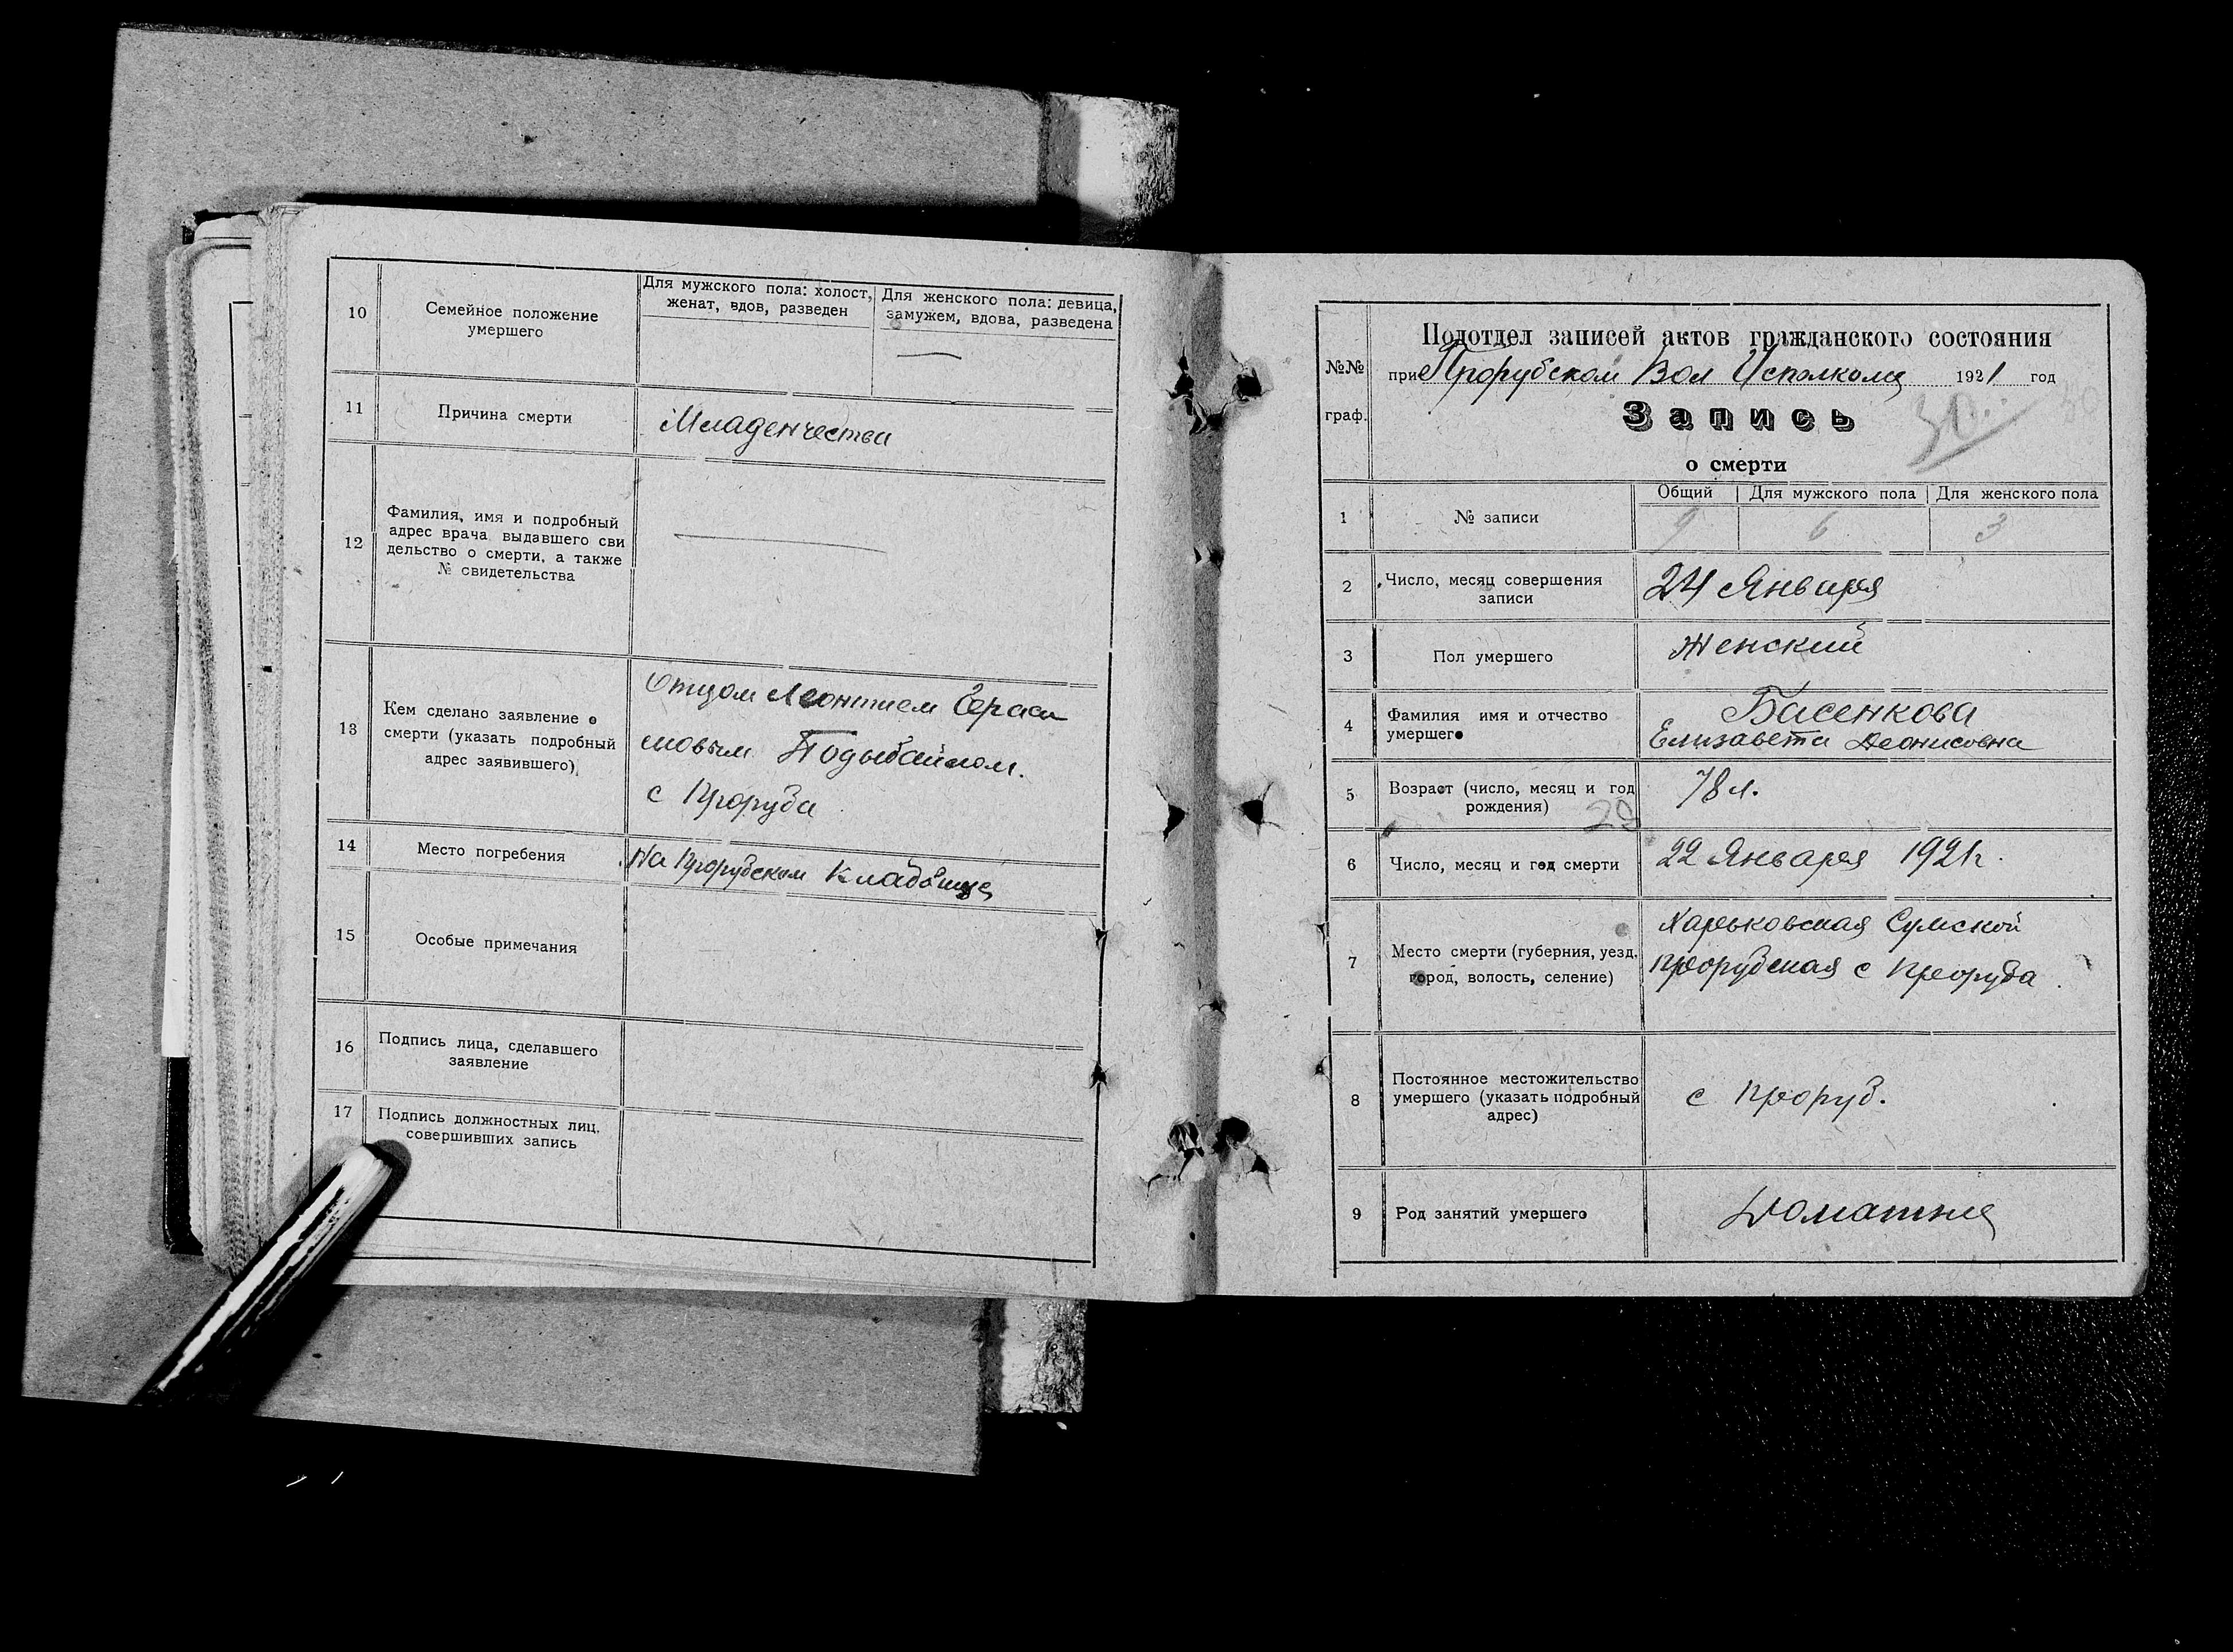 10
Семейное положение
умершего
Для мужского пола: холост,
женат, вдов, разведен
Для женского пола: девица,
замужем, вдова, разведена
—
11
Причина смерти
Младенчества
12
Фамилия, имя и подробный
адрес врача выдавшего сви
дельство о смерти, а также
№ свидетельства
—
13
Кем сделано заявление о
смерти (указать подробный
адрес заявившего)
Отцом Леонтием Гераси
мовым
с Проруба
14
Место погребения
На Прорубском Кладбище
15
Особые примечания
16
Подпись лица, сделавшего
заявление
17
Подпись должностных лиц,
совершивших запись
№№
граф.
Подотдел записей актов гражданского состояния
при Прорубском Вол Исполкоме 1921 год
Запись
30
о смерти
1
№ записи
Общий
Для мужского пола
Для женского пола
9
6
3
2
Число, месяц совершения
записи
24 Января
3
Пол умершего
Женский
4
Фамилия имя и отчество
умершего
Басенкова
Елизавета Деонисовна
5
Возраст (число, месяц и год
рождения)
29
78 л.
6
Число, месяц и год смерти
22 Января 1921 г.
7
Место смерти (губерния, уезд,
город, волость, селение)
Харьковская Сумской
Прорубская с Проруба
8
Постоянное местожительство
умершего (указать подробный
адрес)
с Проруб.
9
Род занятий умершего
Домашние